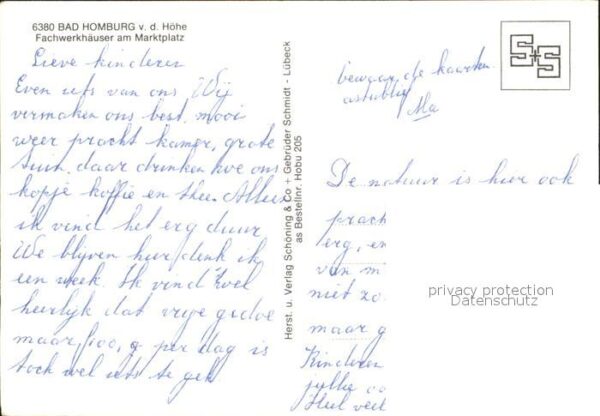 6380 BAD HOMBURG v. d. Höhe
Fachwerkhäuser am Marktplatz
Lieve kinderen
Even iets van ons Wij
vermaken ons best, mooi
weer pracht kamer, grote
tuin, daar drinken we ons
kopje koffie en thee. Alleen
ik vind het erg duur
We blijven hier denk ik
een week. Ik vind 't wel
heerlijk dat vrije gedoe
maar, 100, g per dag is
toch wel iets te gek
Herst. u. Verlag Schöning & Co + Gebrüder Schmidt - Lübeck
as Bestellnr. Hobu 205
S+S
bewaar de kaarten
astublie
Ma
De natuur is hier ook
prach
erg, en
van m
niet zo
maar g
Kinderen
jullie
Heel veel
privacy protection
Datenschutz